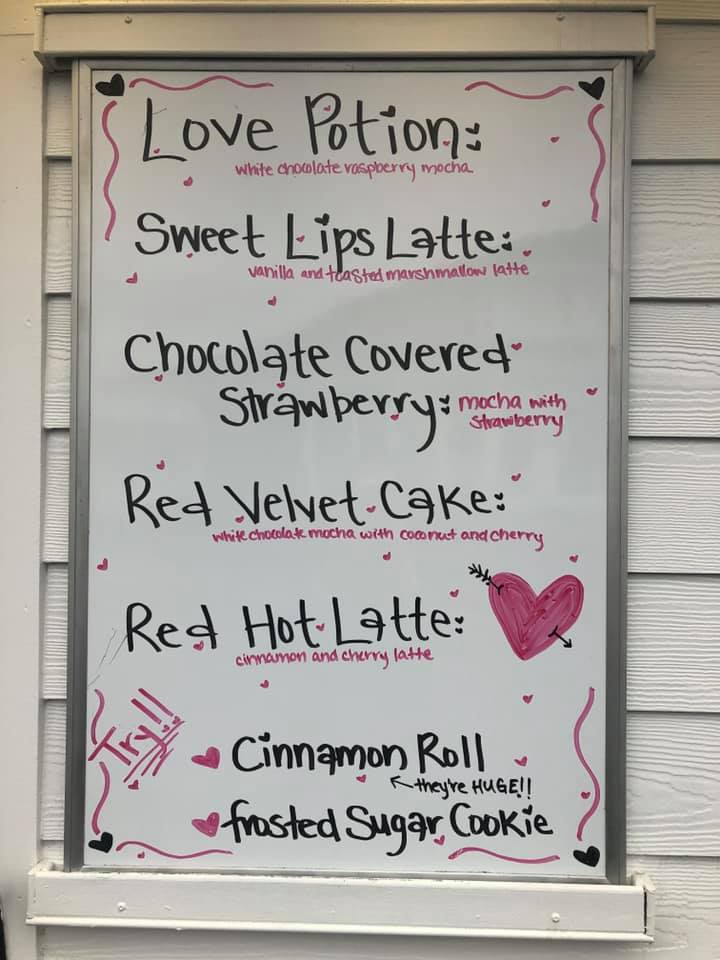 Love Potion:
white chocolate raspberry mocha
Sweet Lips Latte:
vanilla and toasted marshmallow latte
Chocolate Covered
Strawberry: mocha with
strawberry
Red Velvet Cake:
white chocolate mocha with coconut and cherry
Red Hot Latte:
cinnamon and cherry latte
Try!!
Cinnamon Roll
they're HUGE!!
frosted Sugar Cookie